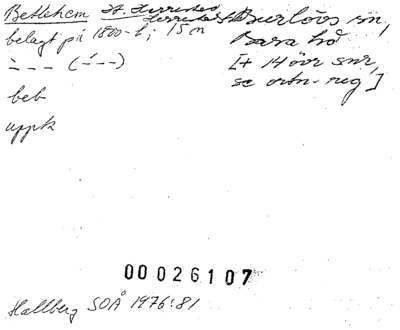 Betlehem Burlövs sn,
belagt på 1800-t; 15 m Bara hd
- - - (- - -) [+ 14 övr snr,
se ortn-reg]
beb
uppk
00026107
Hallberg SOÅ 1976:81